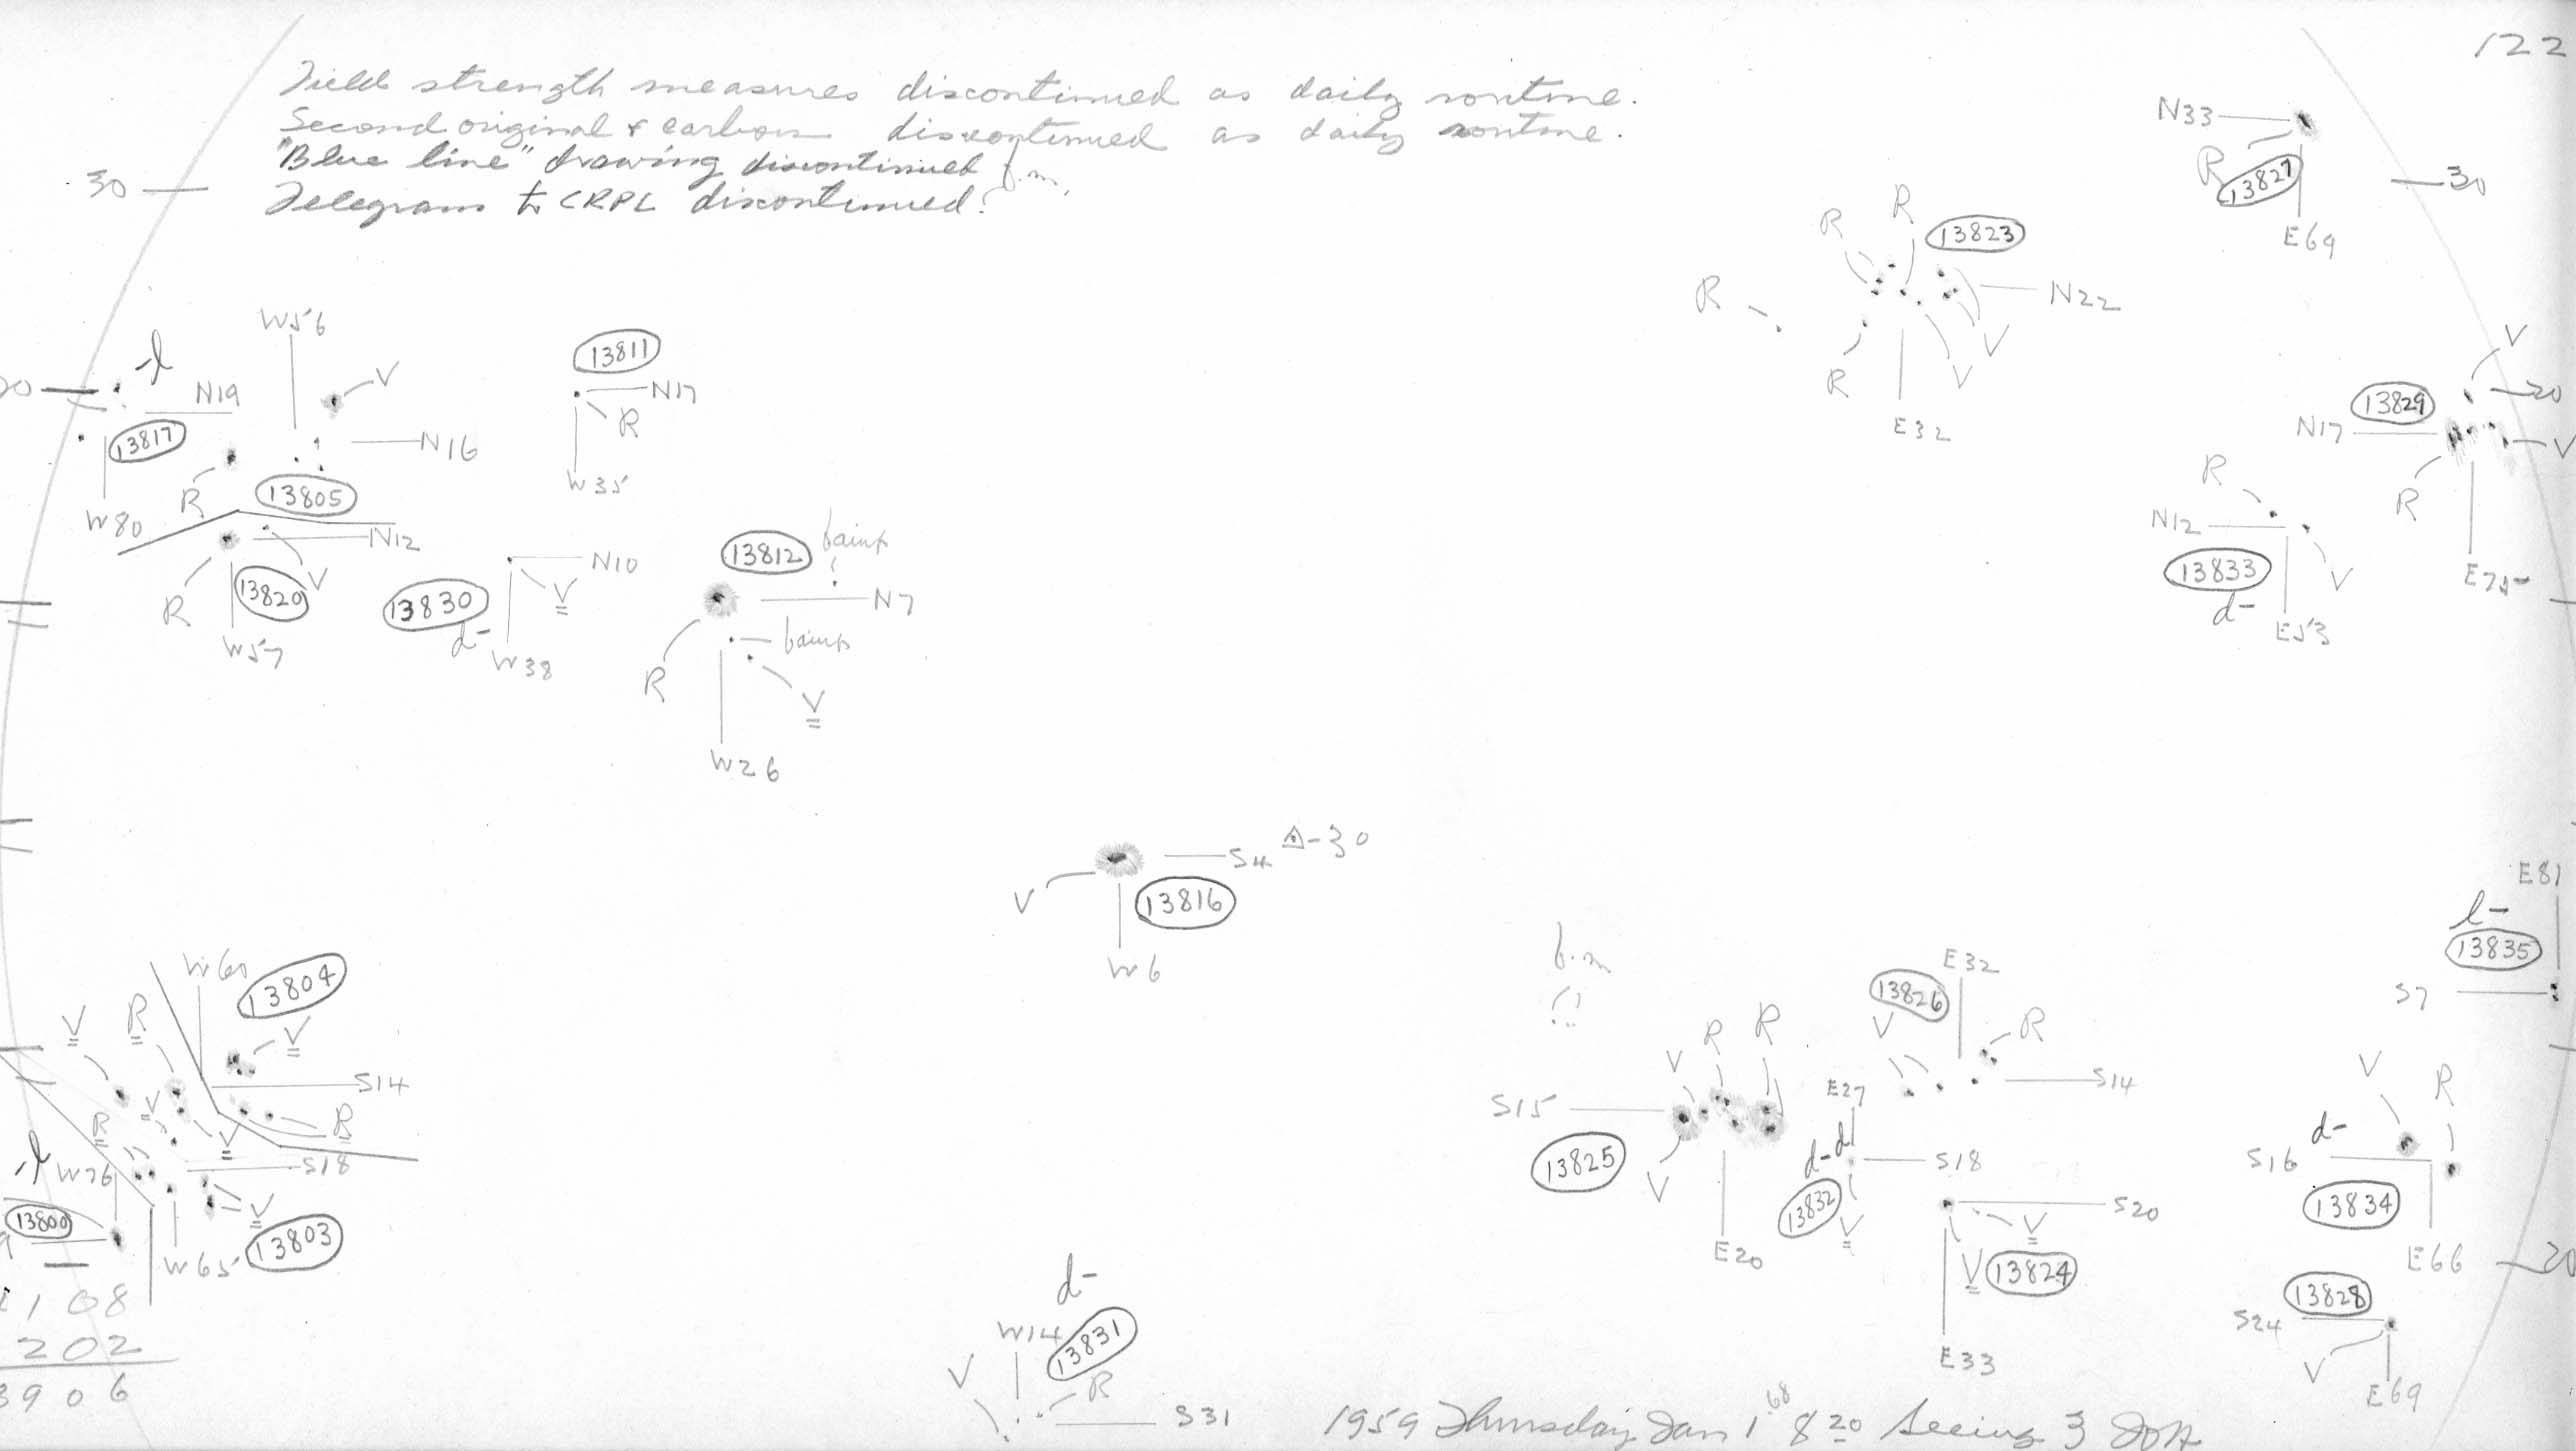 122
Field strength measures discontinued as daily routine.
Second original & carbon discontinued as daily routine.
"Blue line" drawing discontinued
Telegram to CRPL discontinued.
30
30
N33
R
13827
E69
R
R
13823
R
N22
V
V
R
E32
W56
l
N19
V
13817
W80
N16
R
13805
13811
N17
R
W35
V
20
13829
N17
V
R
E75
N12
R
13820
V
W57
N10
13830
V
d-
W38
13812
faint
N7
faint
R
V
W26
R
N12
13833
V
d-
E53
S4
V
13816
W6
E81
l-
13835
S7
W60
13804
V
R
V
S14
V
R
R
V
l
W76
S18
13800
V
W65
13803
108
202
3906
f.m
V
R
R
S15
V
13825
E20
E32
13826
V
R
S14
E27
d-
d
S18
13832
V
S20
V
V
13824
E33
V
R
d-
S16
13834
E66
20
13828
S24
V
E69
d-
W14
13831
V
R
S31
1959 Thursday Jan 1.68 8 20 Seeing 3